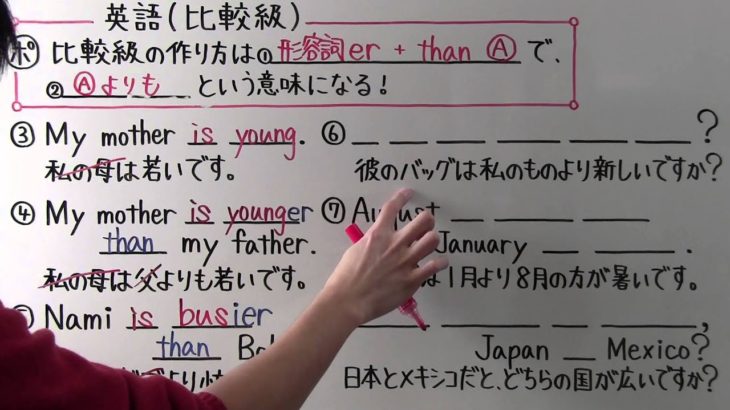 英語(比較級)
ポ 比較級の作り方は①形容詞er + than Ⓐで、
②Ⓐよりも という意味になる!
③ My mother is young.
私の母は若いです。
④ My mother is younger
than my father.
私の母は父よりも若いです。
Nami is busier
than
より
⑥ ?
彼のバッグは私のものより新しいですか?
⑦ August
January .
は1月より8月の方が暑いです。
,
Japan Mexico?
日本とメキシコだと、どちらの国が広いですか?